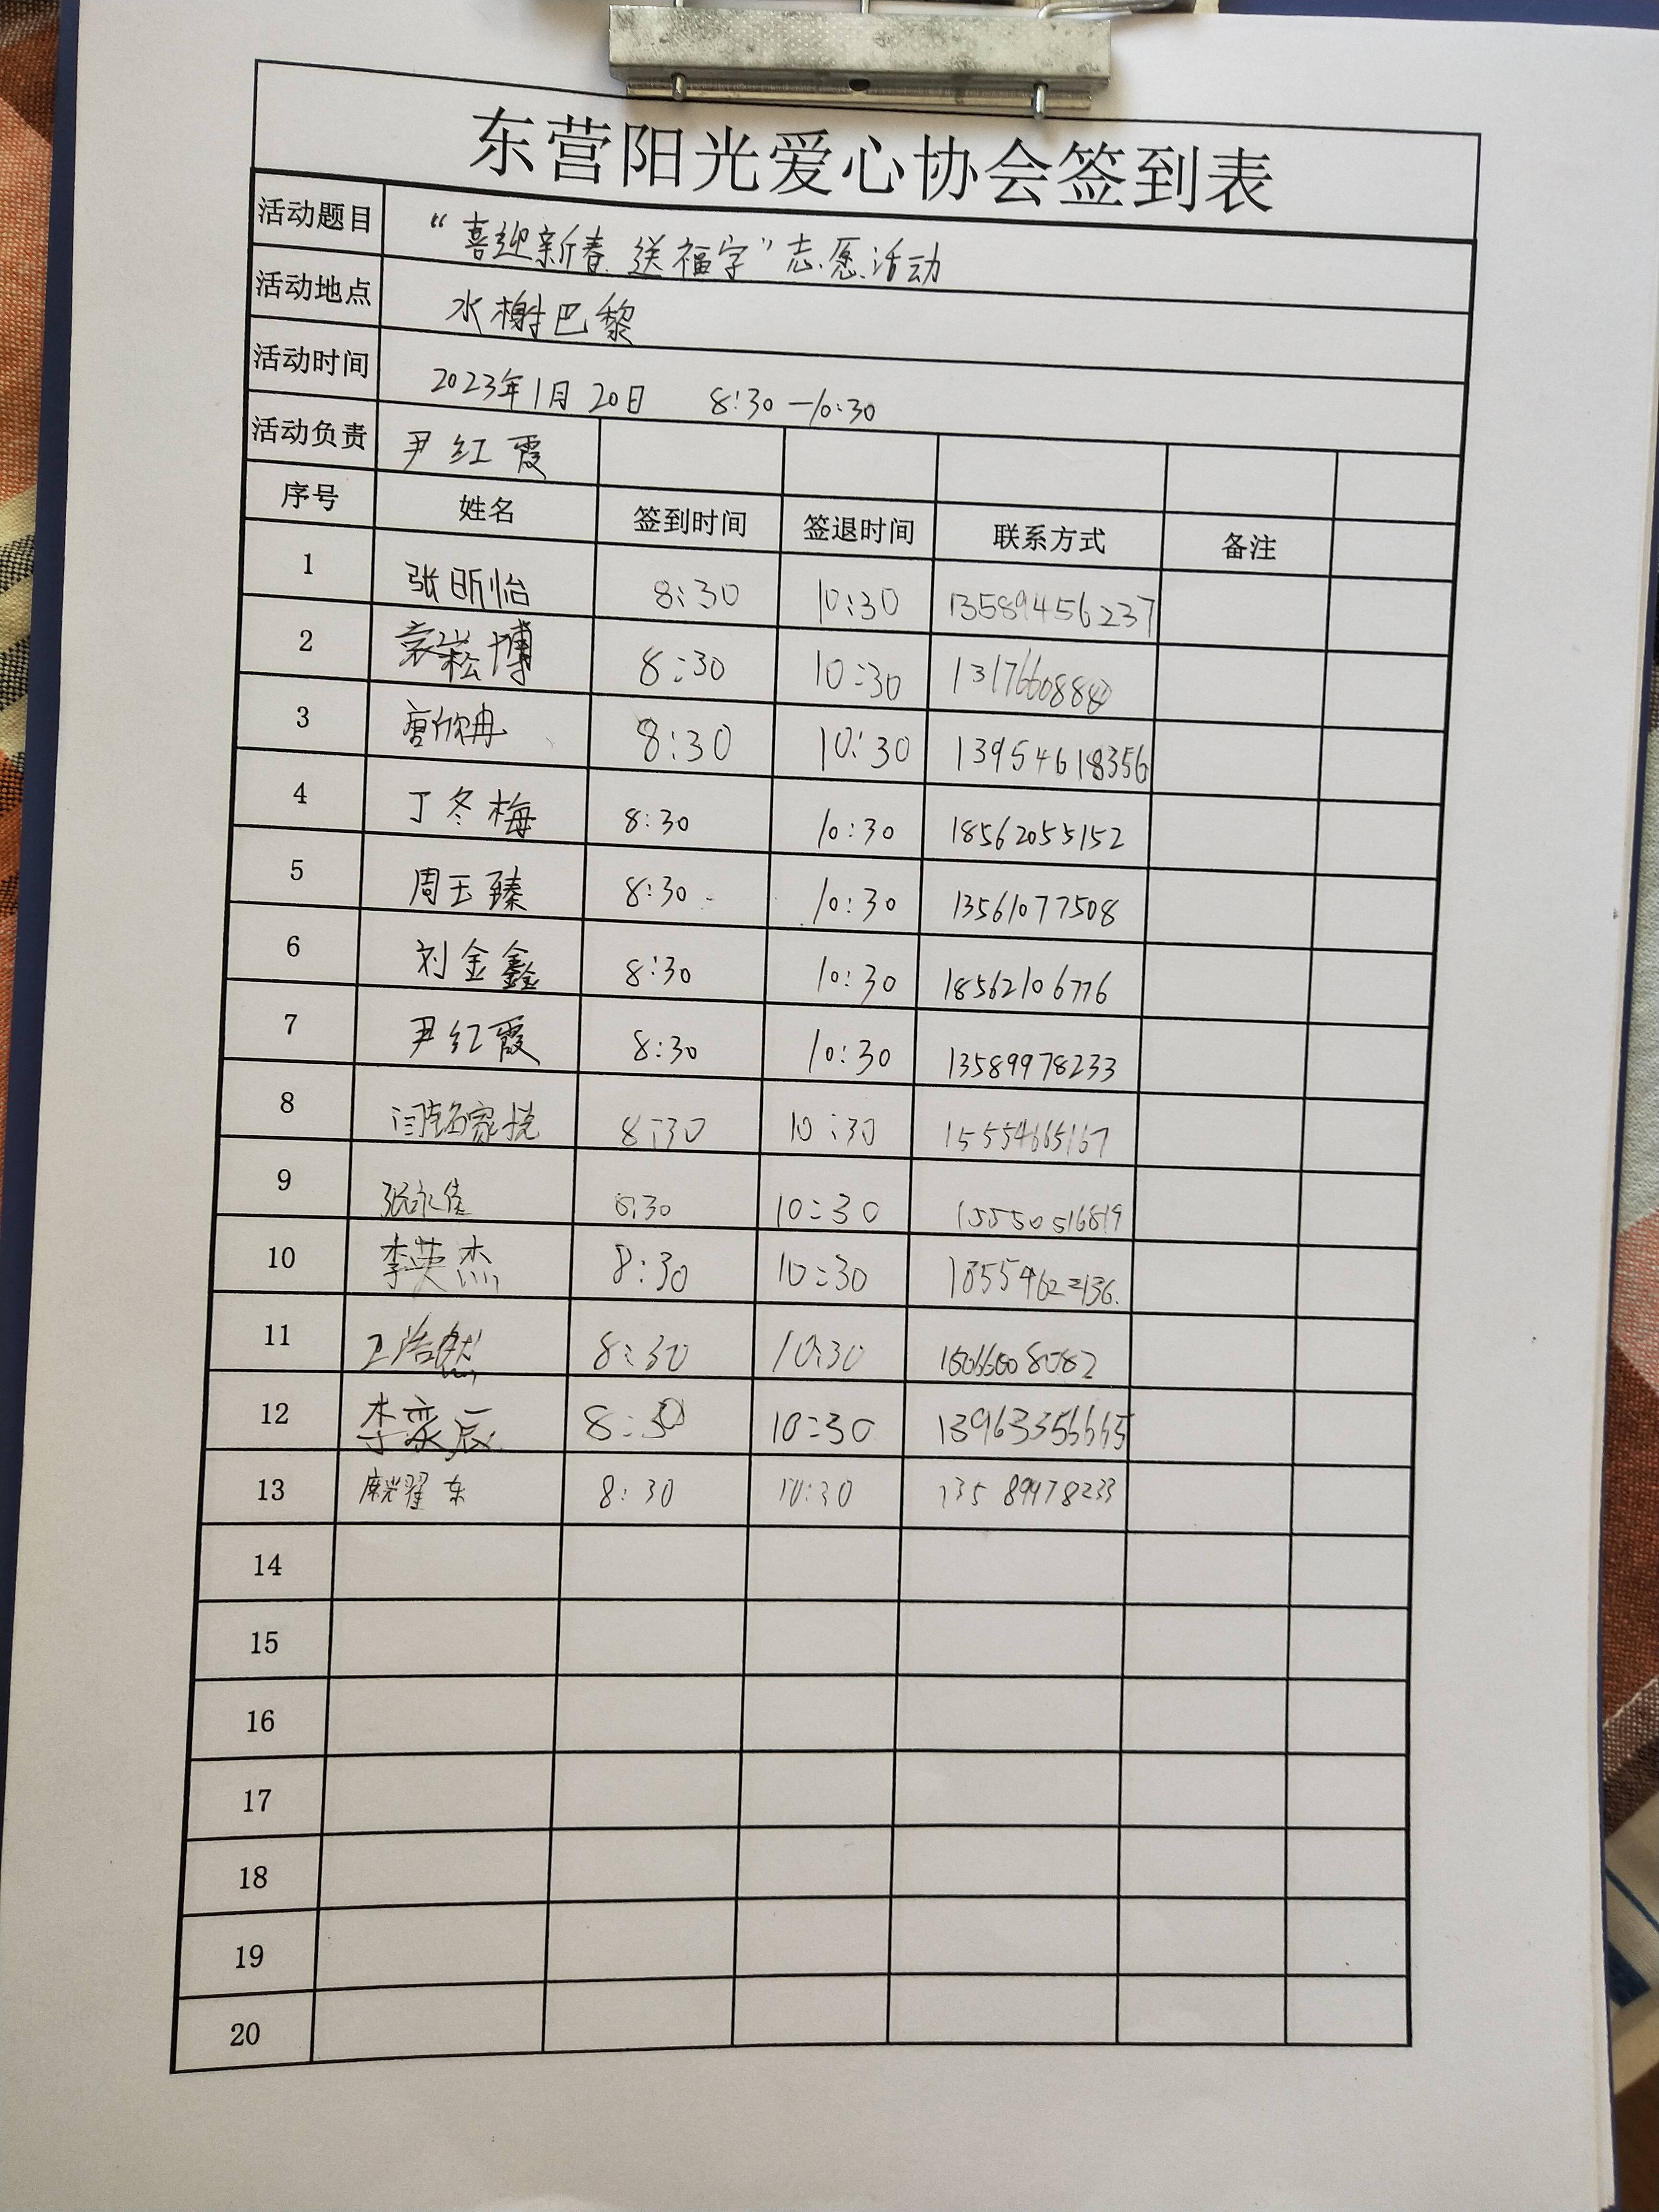 东营阳光爱心协会签到表
活动题目 “喜迎新春 送福字”志愿活动
活动地点 水榭巴黎
活动时间 2023年1月20日 8:30—10:30
活动负责 尹红霞
序号 姓名 签到时间 签退时间 联系方式 备注
1 张昕怡 8:30 10:30 13589456237
2 袁崧博 8:30 10:30
3 唐欣冉 8:30 10:30 13954618356
4 丁冬梅 8:30 10:30 18562055152
5 周玉臻 8:30 10:30 13561077508
6 刘金鑫 8:30 10:30 18562106776
7 尹红霞 8:30 10:30 13589978233
8 8:30 10:30 15554665167
9 张永佳 8:30 10:30 15550516819
10 李英杰 8:30 10:30
11 8:30 10:30
12 李奕辰 8:30 10:30
13 8:30 10:30 13589978233
14
15
16
17
18
19
20